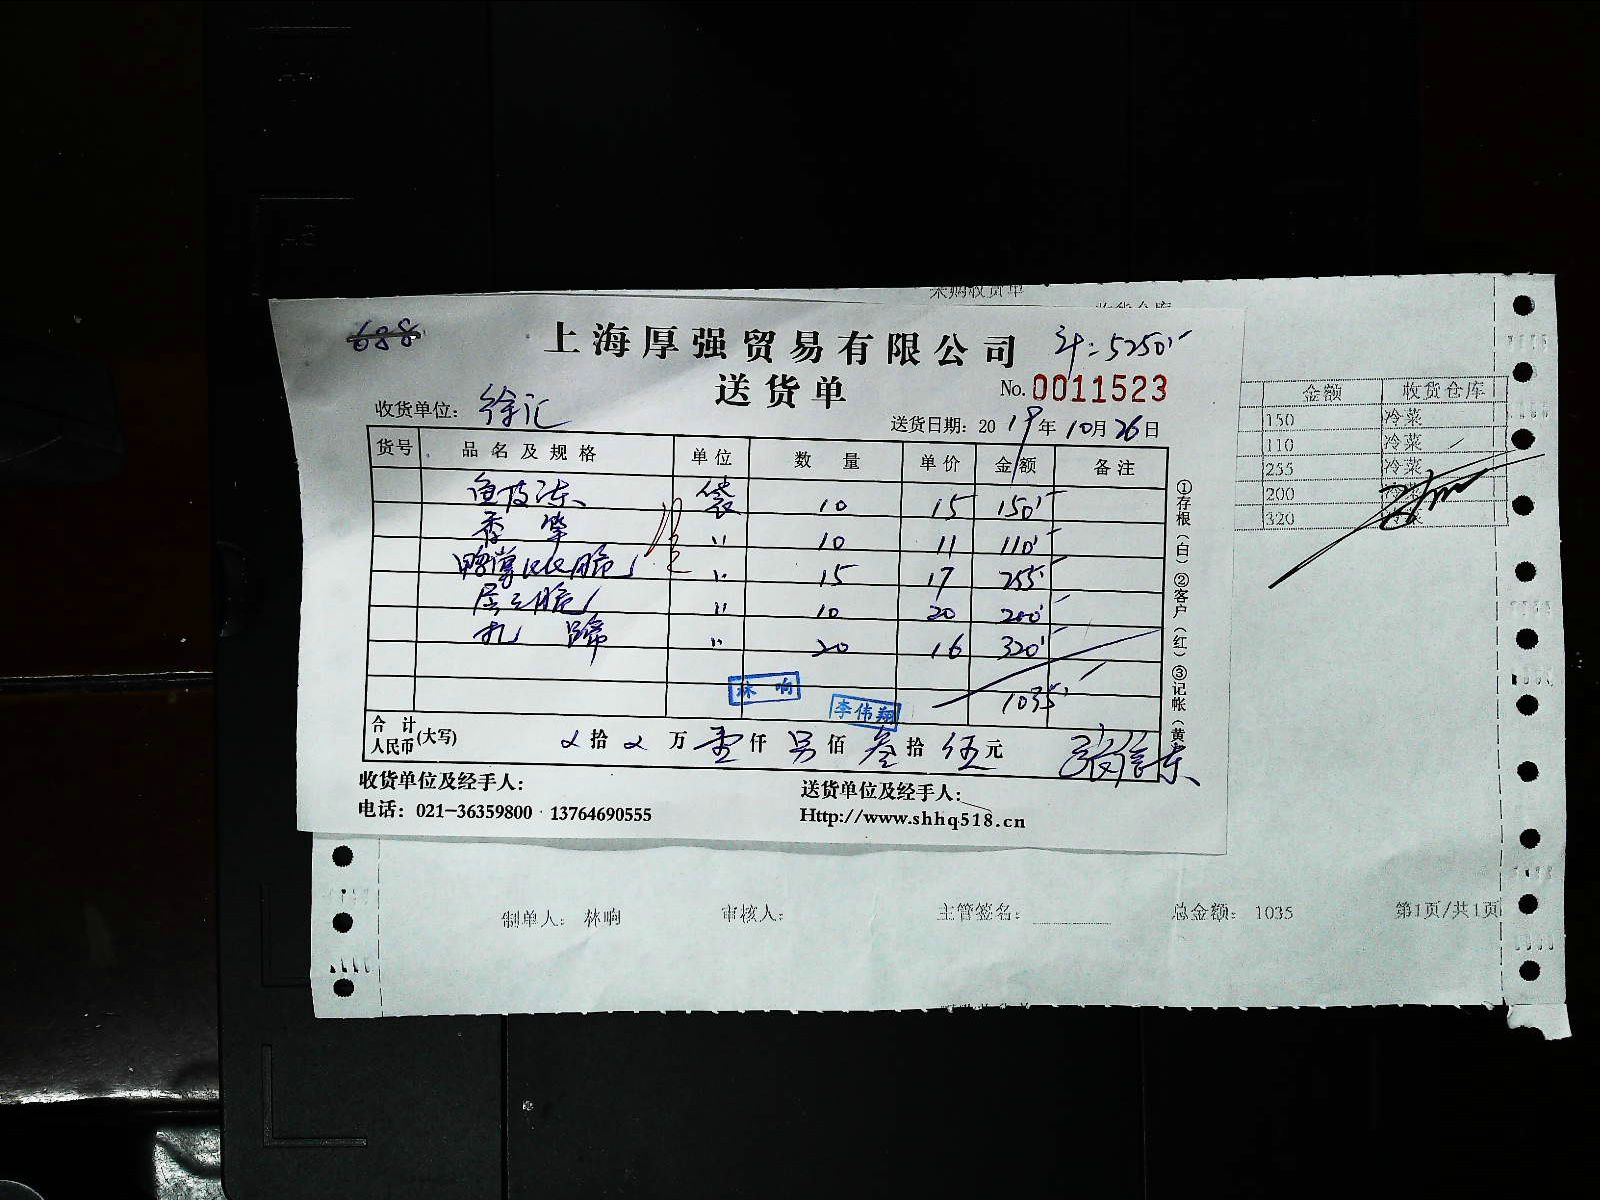 采购收货单
收货仓库
688
上海厚强贸易有限公司
计:5250
送货单
No.0011523
收货单位:徐汇
送货日期:2019年10月26日
货号 品名及规格 单位 数量 单价 金额 备注
鱼皮冻 袋 10 15 150
香 〃 10 11 110
鸭 脆 〃 15 17 255
脆 〃 10 20 200
扎蹄 〃 20 16 320
林响
李伟翔
1035
合计人民币(大写) 拾 万 壹仟 另佰 叁拾 伍元
收货单位及经手人:
送货单位及经手人:
电话:021-36359800 13764690555
Http://www.shhq518.cn
①存根(白)②客户(红)③记帐(黄
金额 收货仓库
150 冷菜
110 冷菜
255 冷菜
200 冷菜
320
制单人:林响 审核人: 主管签名: 总金额:1035 第1页/共1页